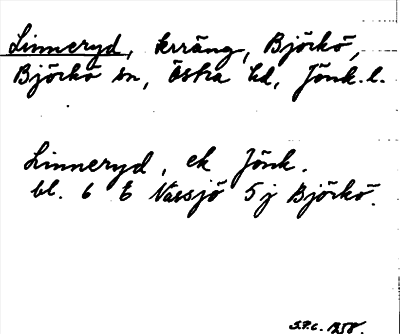 Linneryd, terräng, Björkö,
Björkö sn, Östra hd, Jönk. l.
Linneryd, ek Jönk.
bl. 6 E Nässjö 5 j Björkö.
1958.